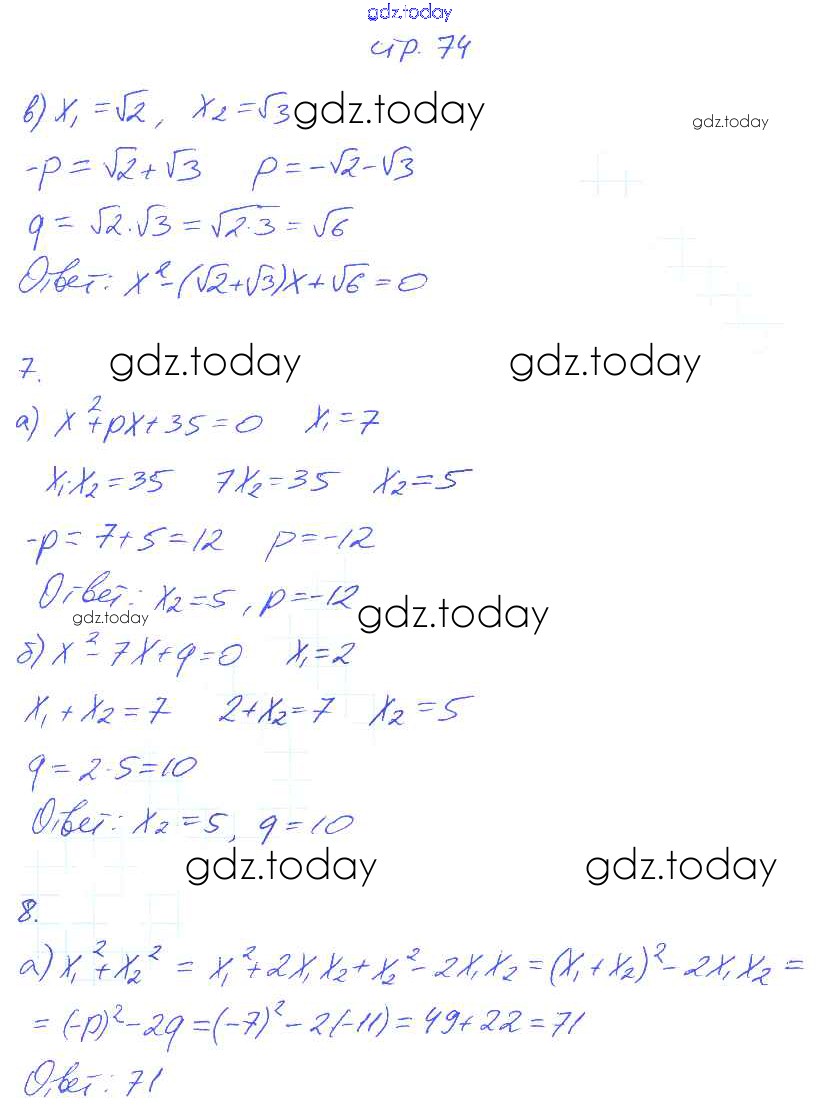 gdz.today
стр. 74
в) x₁ = √2, x₂ = √3 gdz.today gdz.today
-p = √2 + √3 p = -√2 - √3
q = √2 · √3 = √(2·3) = √6
Ответ: x² - (√2 + √3)x + √6 = 0
7. gdz.today gdz.today
а) x² + px + 35 = 0 x₁ = 7
x₁·x₂ = 35 7x₂ = 35 x₂ = 5
-p = 7 + 5 = 12 p = -12
Ответ: x₂ = 5, p = -12 gdz.today
gdz.today
б) x² - 7x + q = 0 x₁ = 2
x₁ + x₂ = 7 2 + x₂ = 7 x₂ = 5
q = 2 · 5 = 10
Ответ: x₂ = 5, q = 10
gdz.today gdz.today
8.
а) x₁² + x₂² = x₁² + 2x₁x₂ + x₂² - 2x₁x₂ = (x₁ + x₂)² - 2x₁x₂ =
= (-p)² - 2q = (-7)² - 2(-11) = 49 + 22 = 71
Ответ: 71